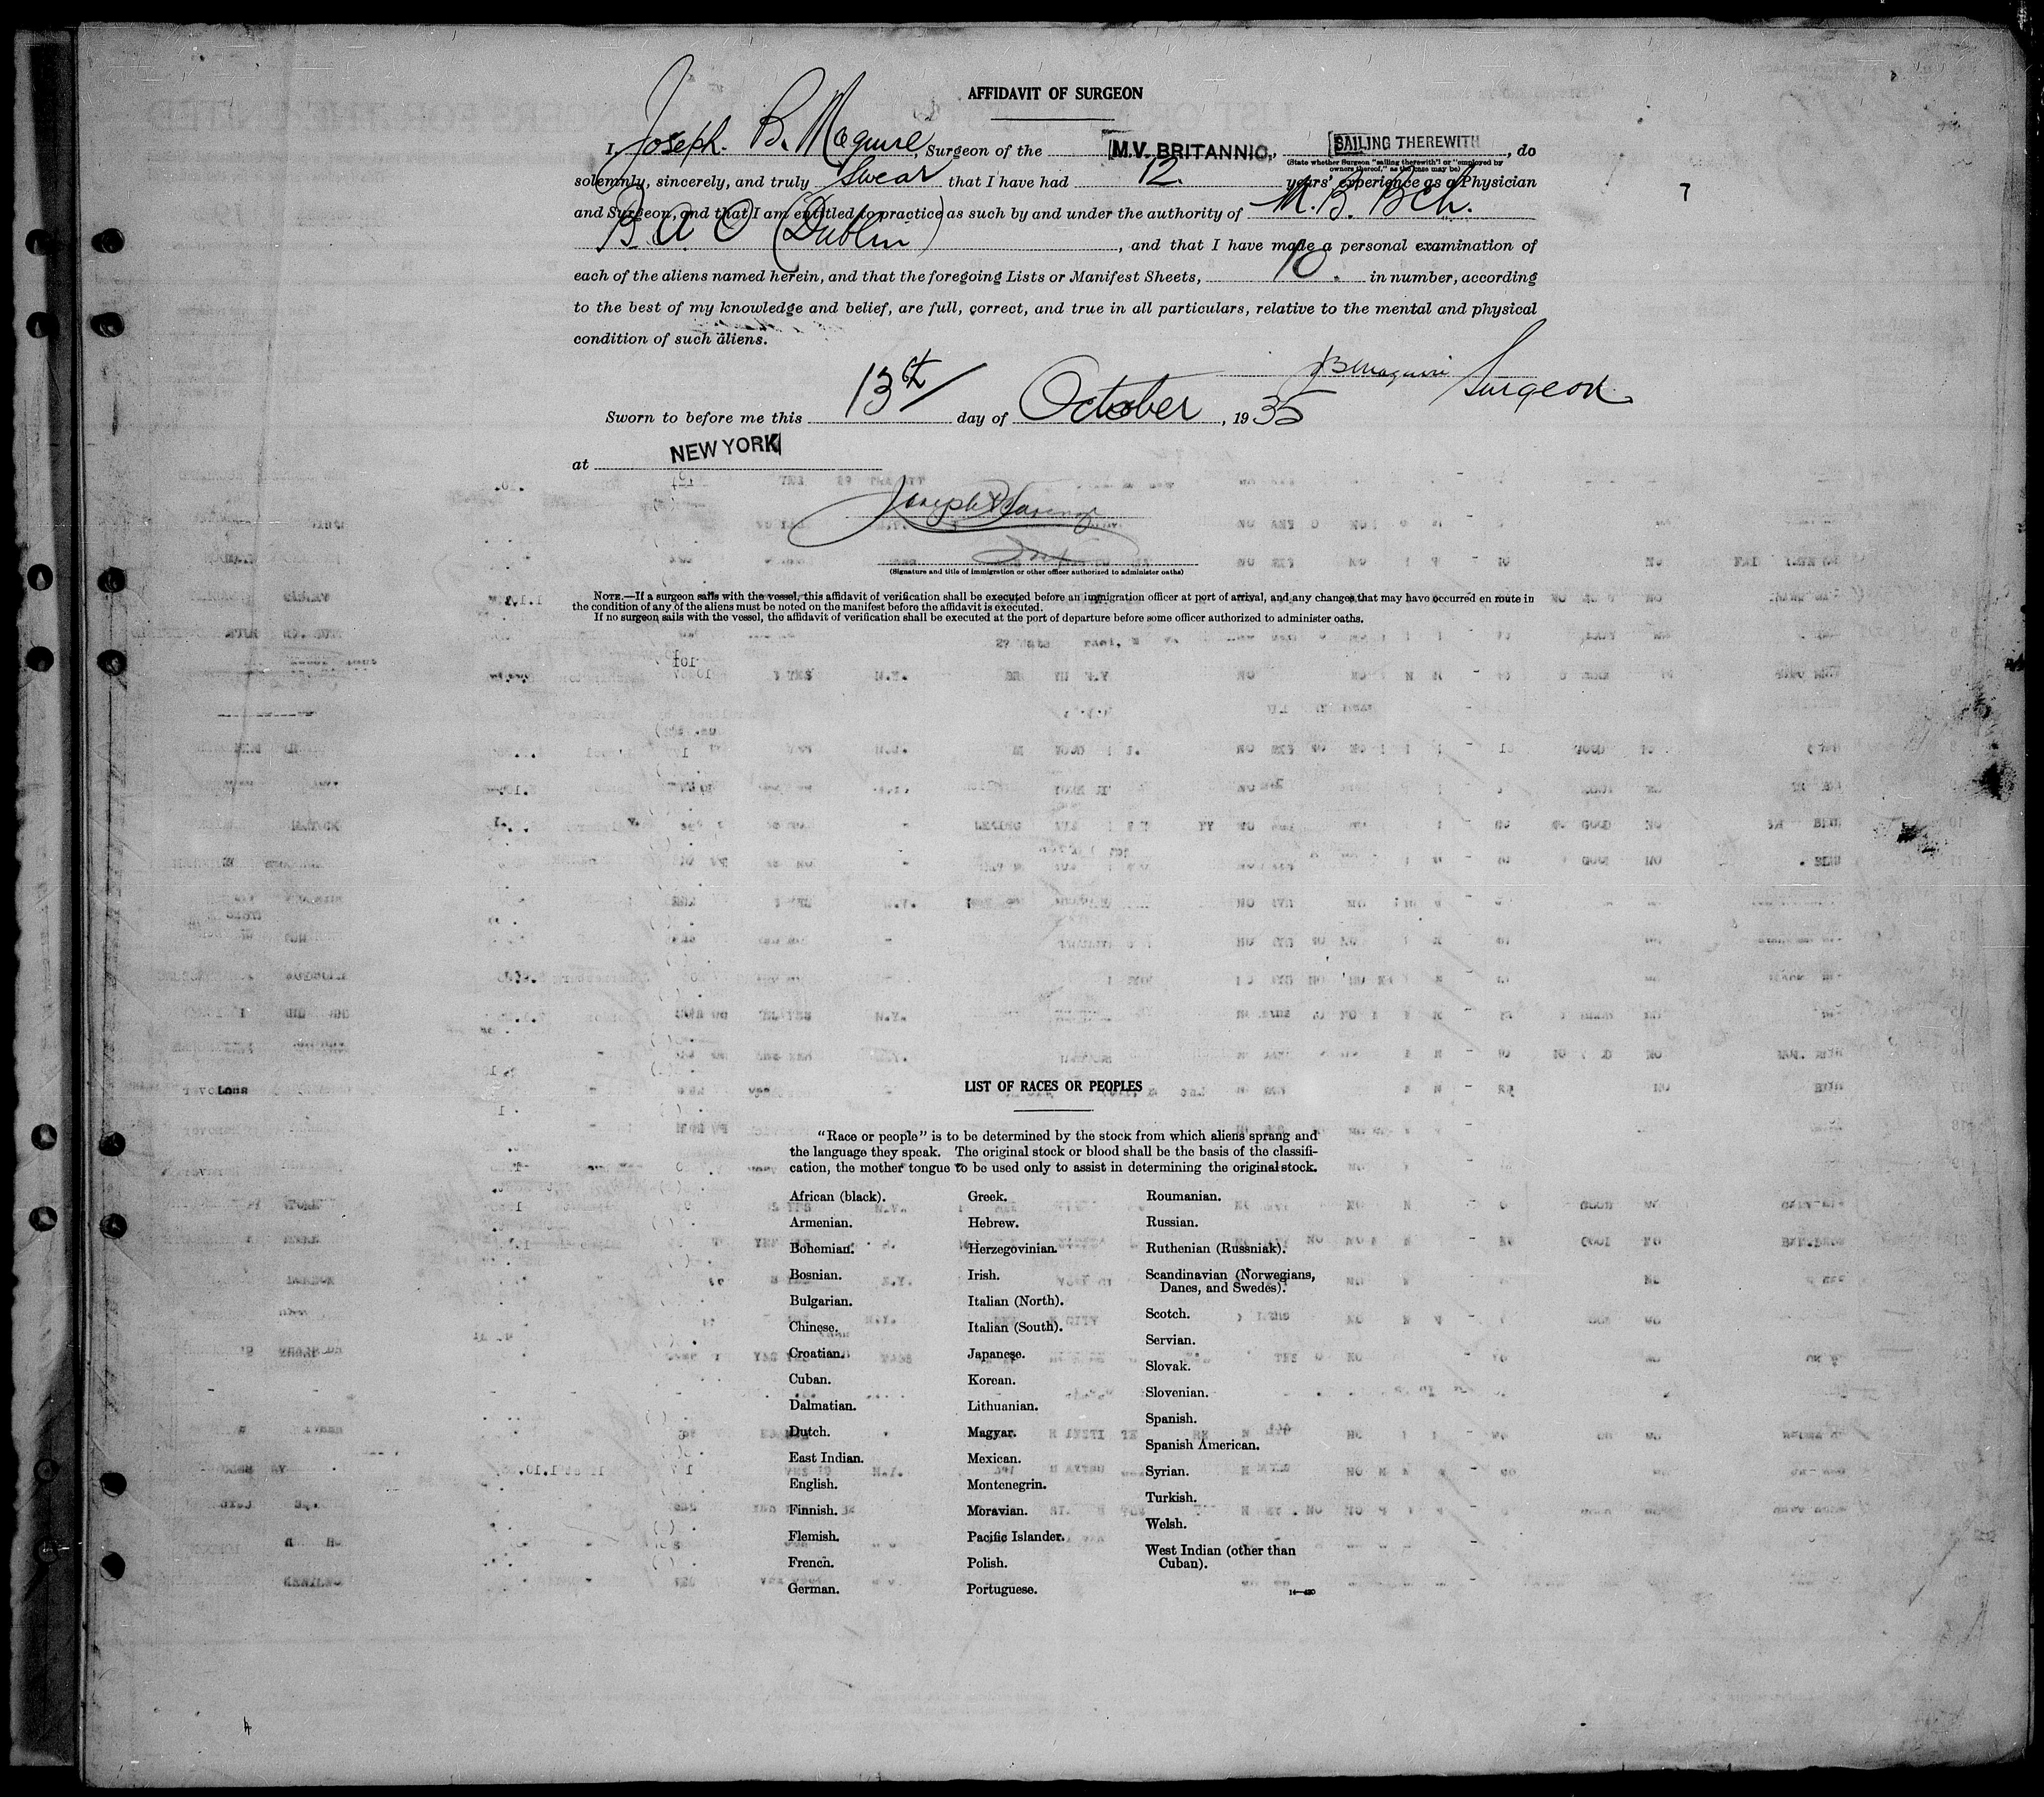 AFFIDAVIT OF SURGEON
I, Joseph. B. Maguire, Surgeon of the M.V. BRITANNIC, SAILING THEREWITH, do
(State whether Surgeon "sailing therewith" or "employed by
owners thereof," as the case may be)
solemnly, sincerely, and truly Swear that I have had 12. years' experience as a Physician
and Surgeon, and that I am entitled to practice as such by and under the authority of M.B. Bch.
B A O (Dublin), and that I have made a personal examination of
each of the aliens named herein, and that the foregoing Lists or Manifest Sheets, 10. in number, according
to the best of my knowledge and belief, are full, correct, and true in all particulars, relative to the mental and physical
condition of such aliens.
JBMaguire Surgeon
Sworn to before me this 13th day of October, 1935
at NEW YORK
Joseph
(Signature and title of immigration or other officer authorized to administer oaths)
NOTE.—If a surgeon sails with the vessel, this affidavit of verification shall be executed before an immigration officer at port of arrival, and any changes that may have occurred en route in
the condition of any of the aliens must be noted on the manifest before the affidavit is executed.
If no surgeon sails with the vessel, the affidavit of verification shall be executed at the port of departure before some officer authorized to administer oaths.
LIST OF RACES OR PEOPLES
"Race or people" is to be determined by the stock from which aliens sprang and
the language they speak. The original stock or blood shall be the basis of the classifi-
cation, the mother tongue to be used only to assist in determining the original stock.
African (black).
Armenian.
Bohemian.
Bosnian.
Bulgarian.
Chinese.
Croatian.
Cuban.
Dalmatian.
Dutch.
East Indian.
English.
Finnish.
Flemish.
French.
German.
Greek.
Hebrew.
Herzegovinian.
Irish.
Italian (North).
Italian (South).
Japanese.
Korean.
Lithuanian.
Magyar.
Mexican.
Montenegrin.
Moravian.
Pacific Islander.
Polish.
Portuguese.
Roumanian.
Russian.
Ruthenian (Russniak).
Scandinavian (Norwegians,
Danes, and Swedes).
Scotch.
Servian.
Slovak.
Slovenian.
Spanish.
Spanish American.
Syrian.
Turkish.
Welsh.
West Indian (other than
Cuban).